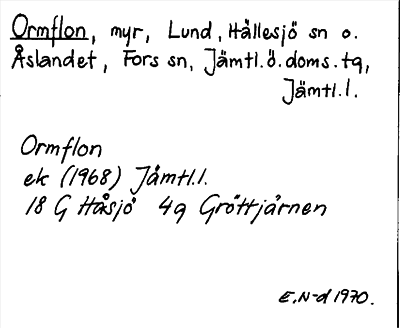 Ormflon, myr, Lund, Hällesjö sn o.
Åslandet, Fors sn, Jämtl.ö.doms.tg,
Jämtl.l.
Ormflon
ek (1968) Jämtl.l.
18 G Håsjö 4g Gröttjärnen
E.N-d 1970.